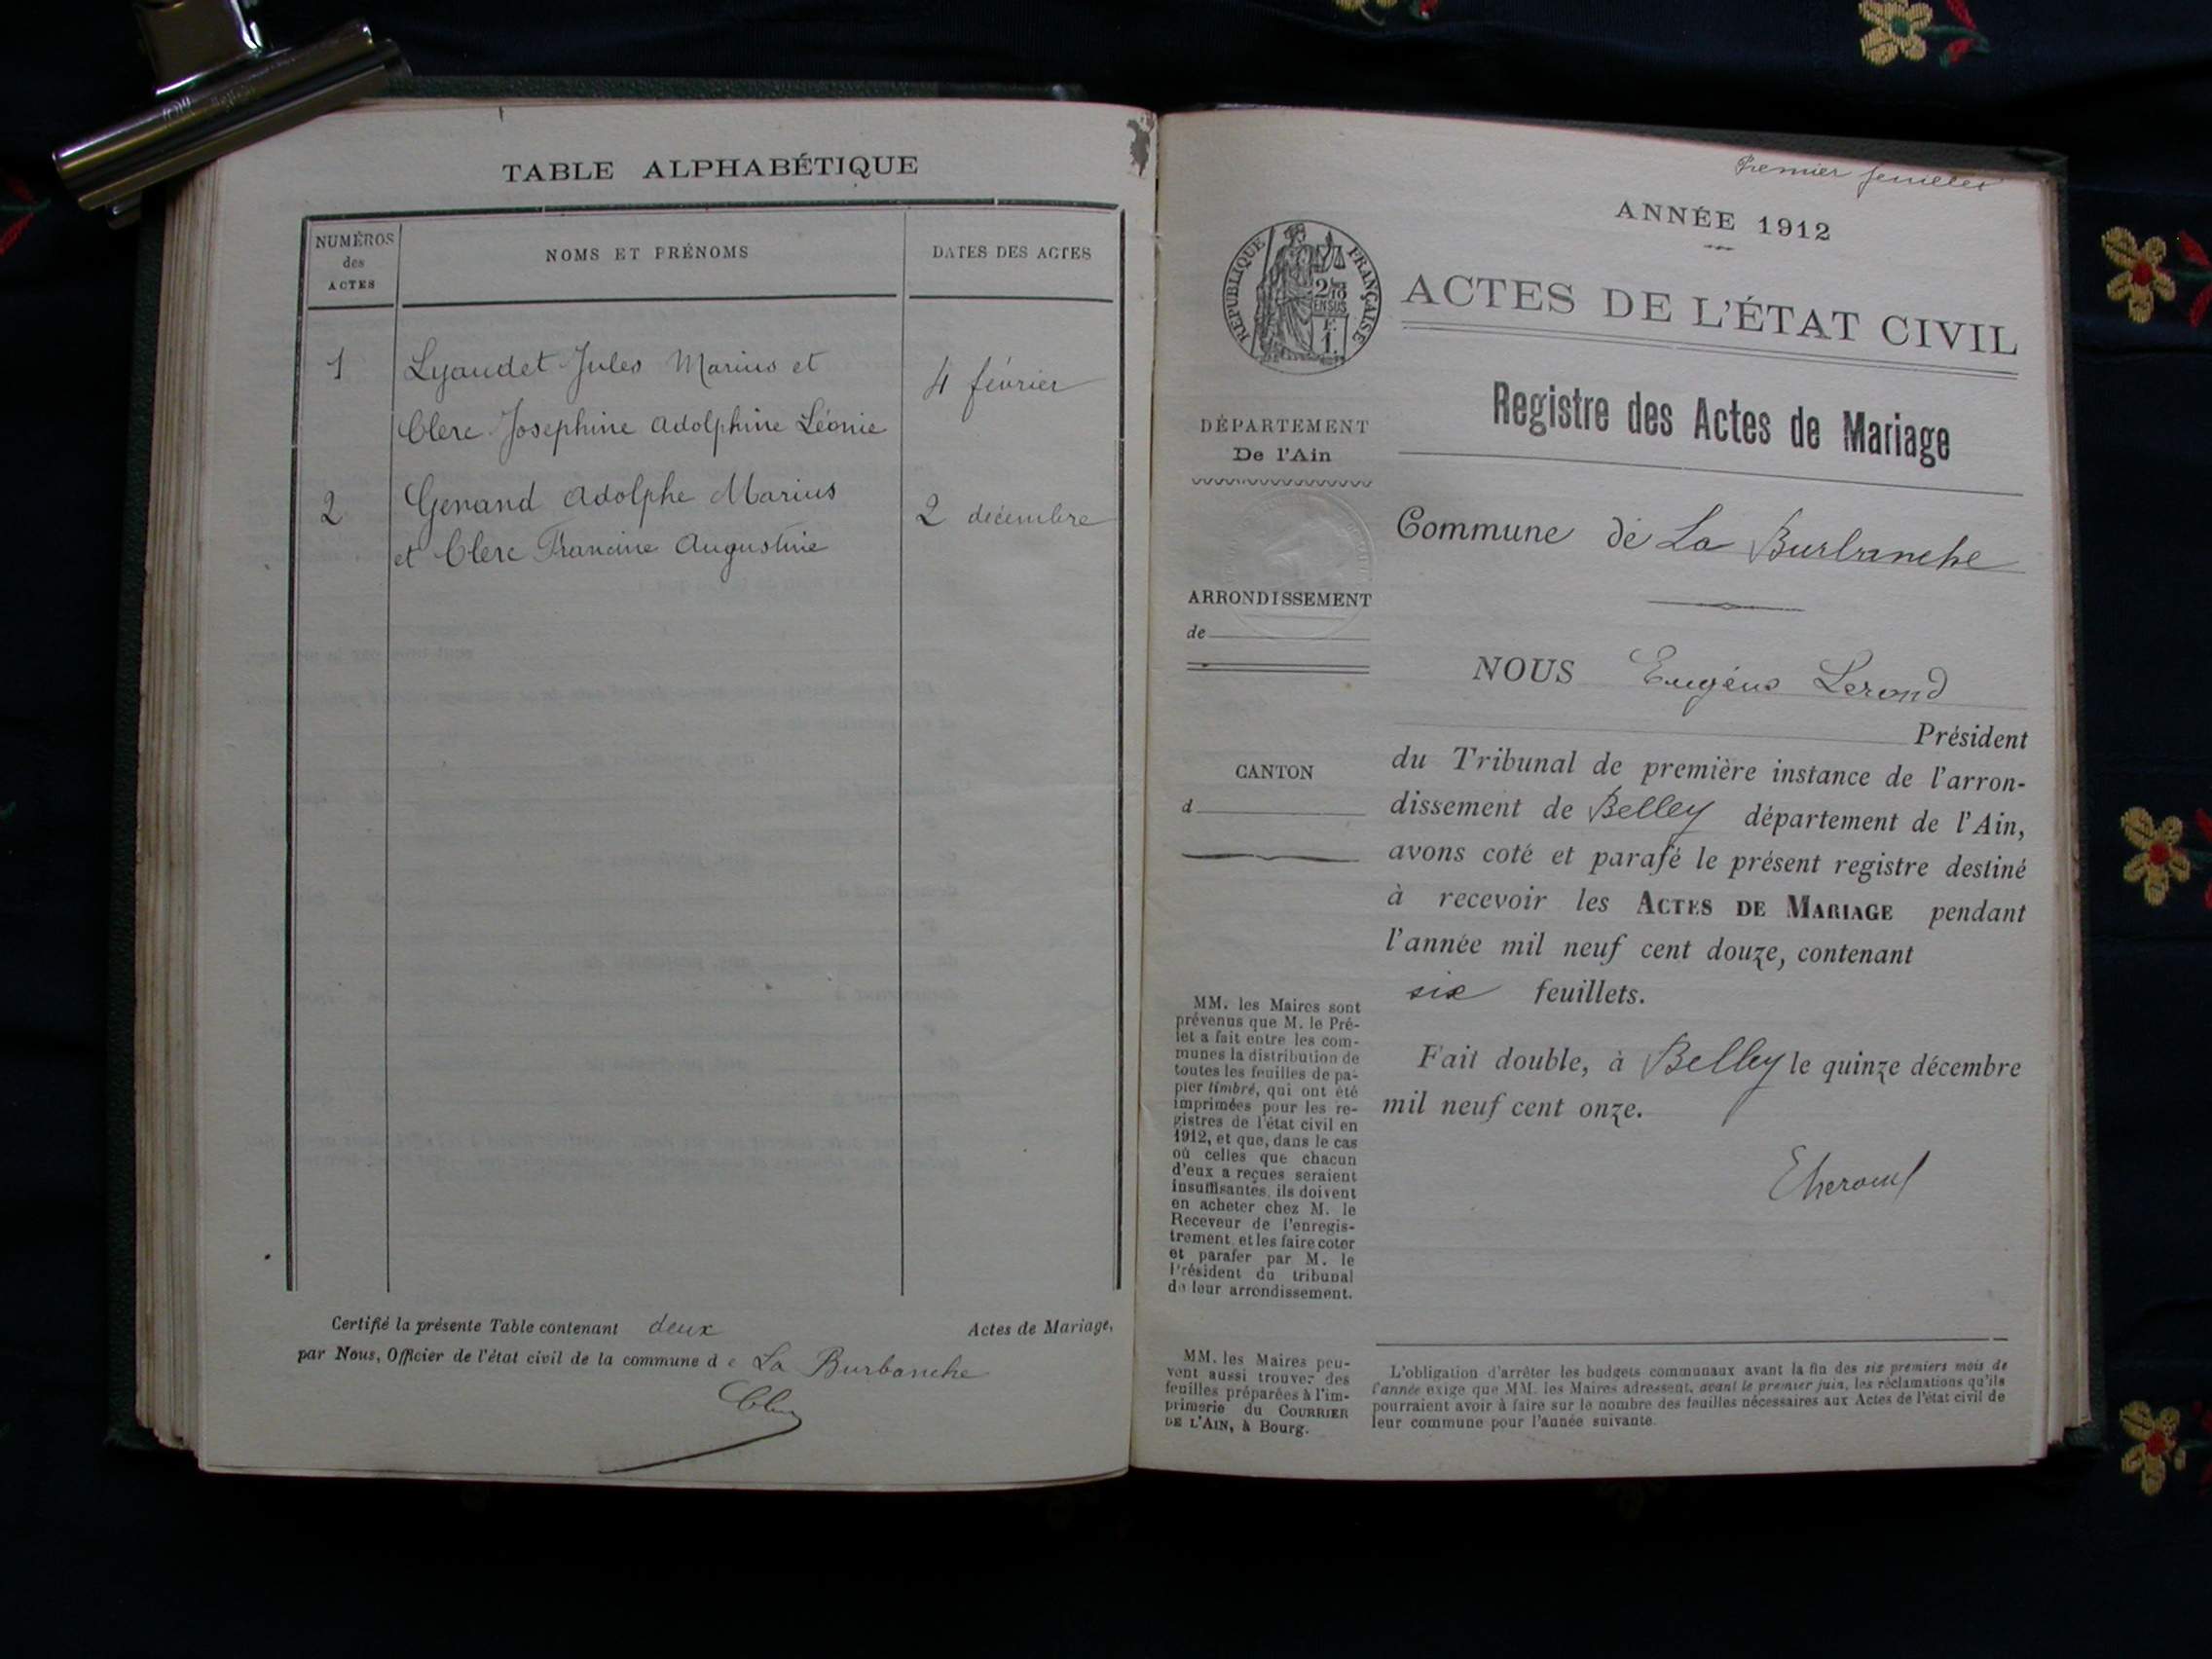 TABLE ALPHABÉTIQUE
NUMÉROS
des
ACTES
NOMS ET PRÉNOMS
DATES DES ACTES
1
Lyaudet Jules Marius et
Clerc Josephine Adolphine Léonie
4 février
2
Genand Adolphe Marius
et Clerc Francine Augustine
2 décembre
Certifié la présente Table contenant deux Actes de Mariage,
par Nous, Officier de l'état civil de la commune de La Burbanche
Premier feuillet
ANNÉE 1912
RÉPUBLIQUE FRANÇAISE
2/10
EN SUS
F.
1.
ACTES DE L'ÉTAT CIVIL
Registre des Actes de Mariage
DÉPARTEMENT
De l'Ain
Commune de La Burbanche
ARRONDISSEMENT
de
NOUS Eugène Lerond
Président
CANTON
d
du Tribunal de première instance de l'arron-
dissement de Belley département de l'Ain,
avons coté et parafé le présent registre destiné
à recevoir les ACTES DE MARIAGE pendant
l'année mil neuf cent douze, contenant
six feuillets.
Fait double, à Belley le quinze décembre
mil neuf cent onze.
MM. les Maires sont
prévenus que M. le Pré-
fet a fait entre les com-
munes la distribution de
toutes les feuilles de pa-
pier timbré, qui ont été
imprimées pour les re-
gistres de l'état civil en
1912, et que, dans le cas
où celles que chacun
d'eux a reçues seraient
insuffisantes, ils doivent
en acheter chez M. le
Receveur de l'enregis-
trement et les faire coter
et parafer par M. le
Président du tribunal
de leur arrondissement.
MM. les Maires peu-
vent aussi trouver des
feuilles préparées à l'im-
primerie du COURRIER
DE L'AIN, à Bourg.
L'obligation d'arrêter les budgets communaux avant la fin des six premiers mois de
l'année exige que MM. les Maires adressent, avant le premier juin, les réclamations qu'ils
pourraient avoir à faire sur le nombre des feuilles nécessaires aux Actes de l'état civil de
leur commune pour l'année suivante.